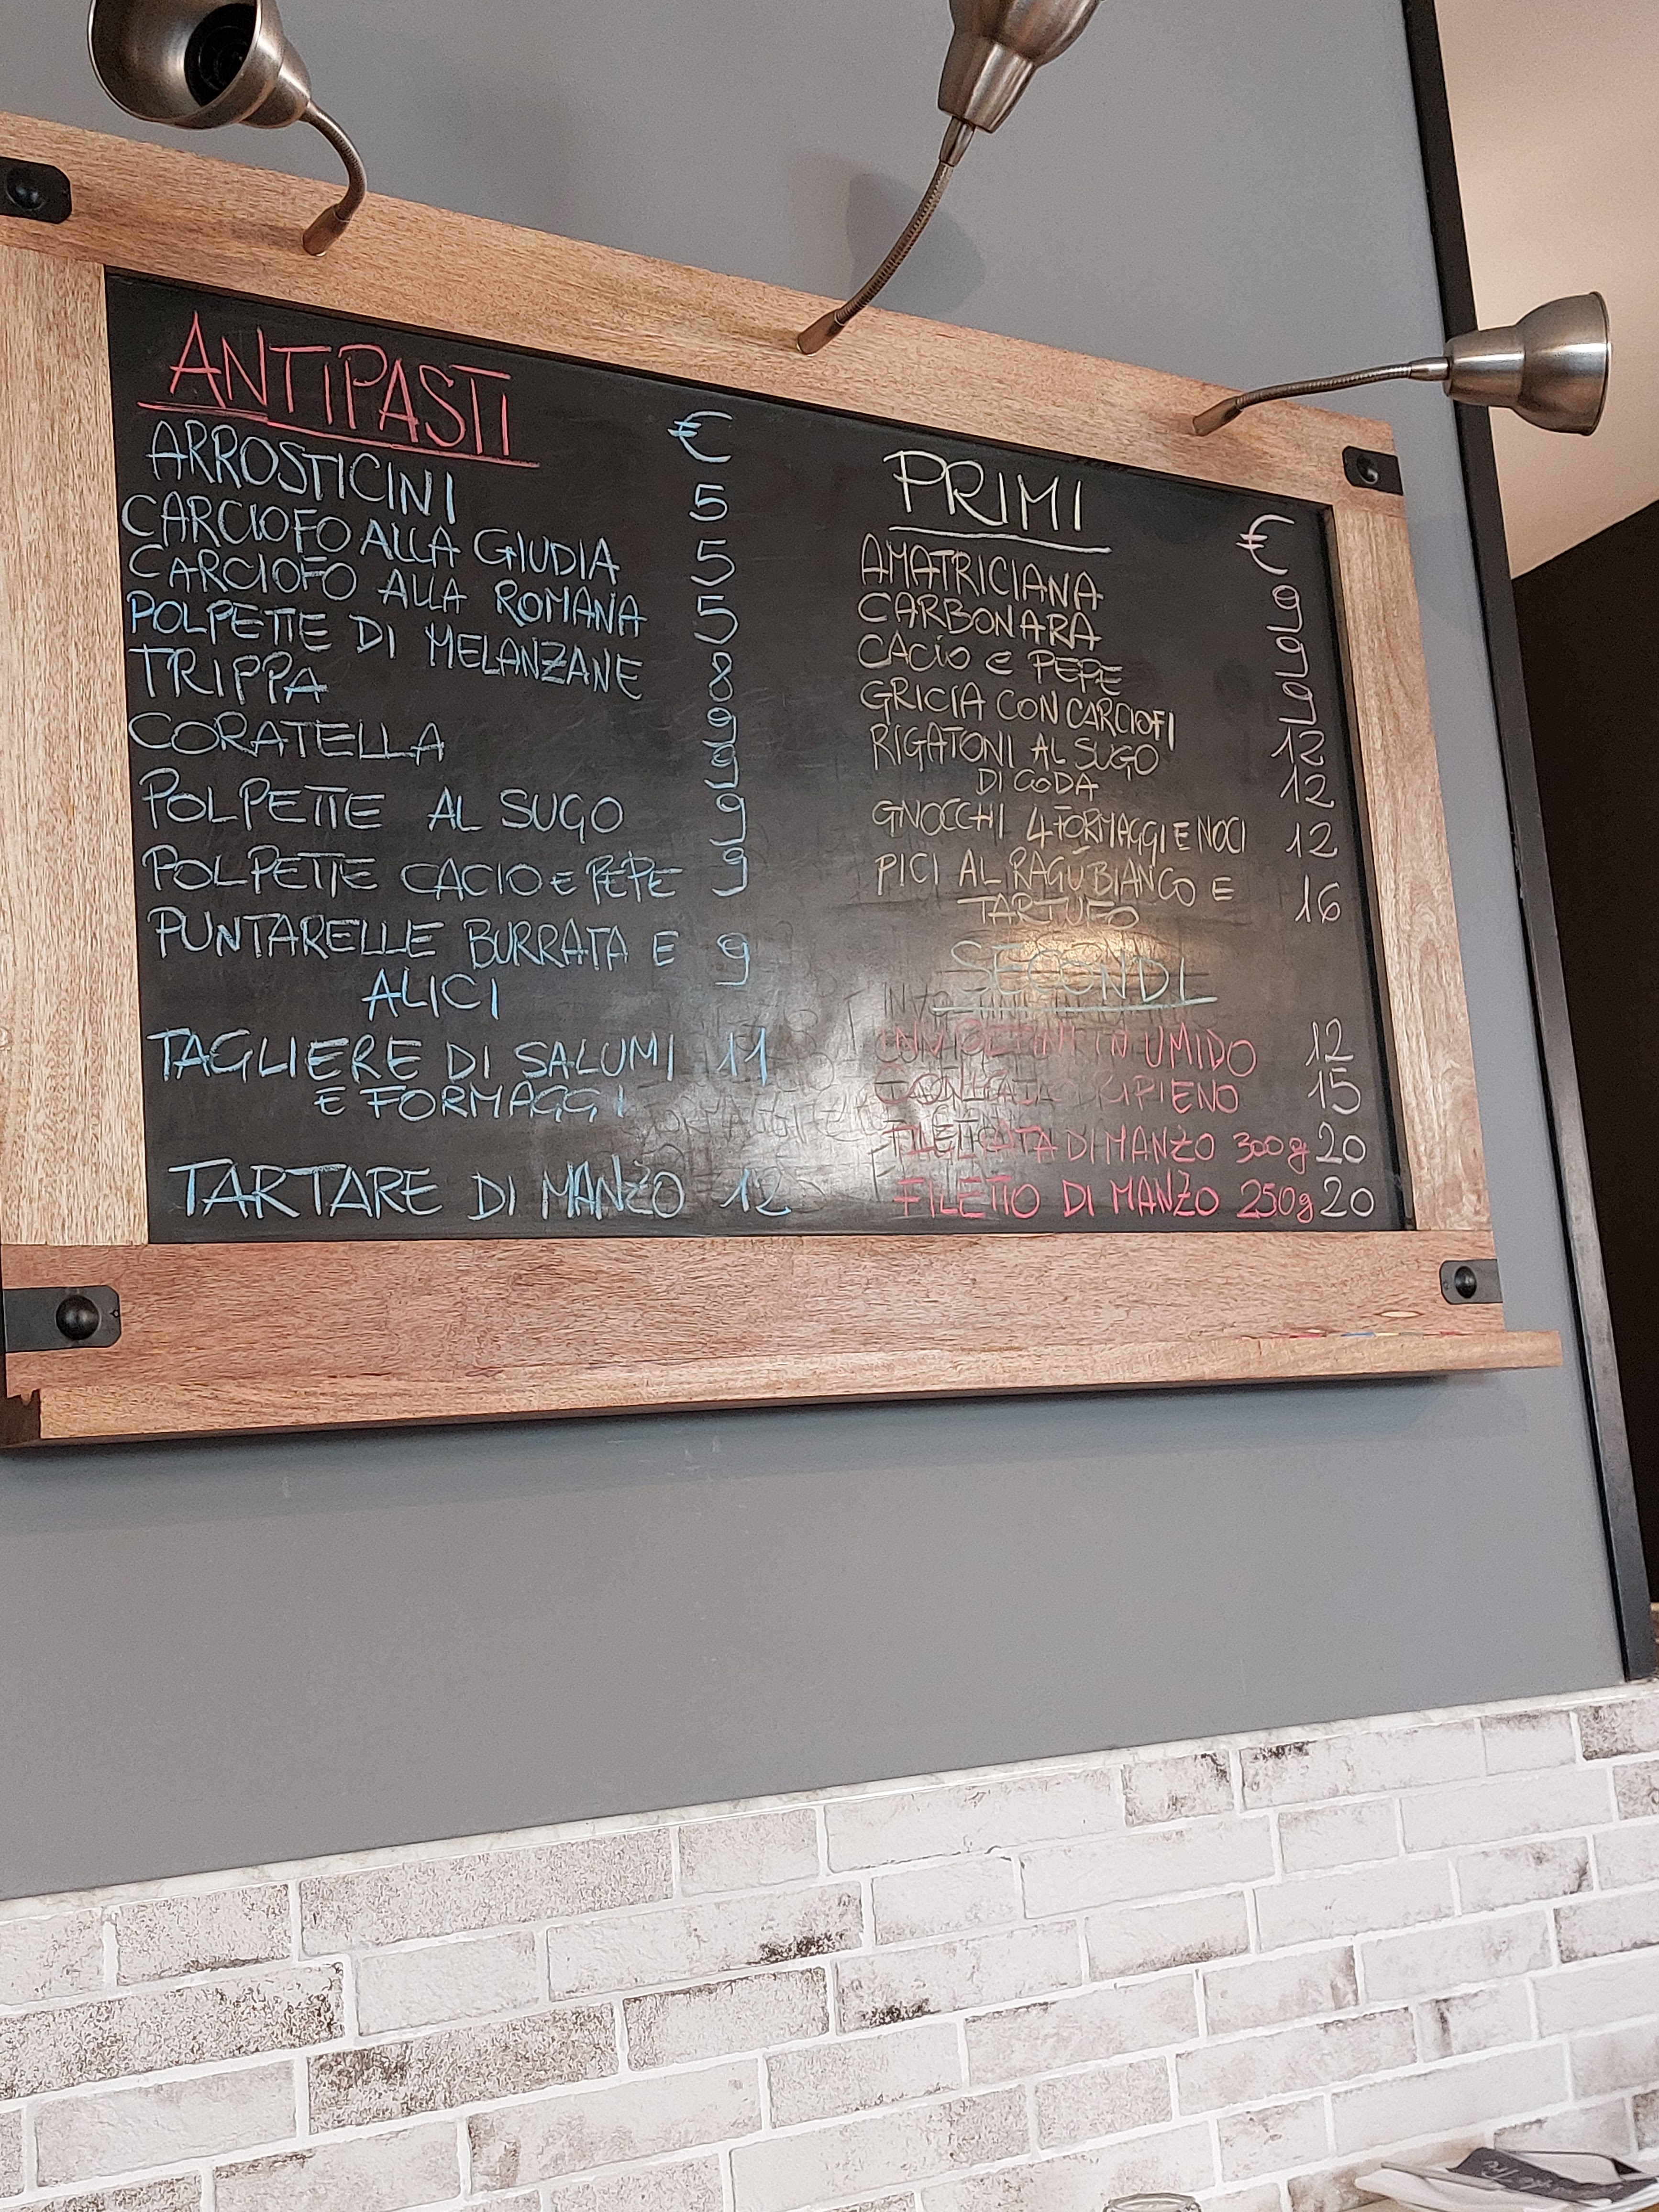 ANTIPASTI
€
ARROSTICINI 5
CARCIOFO ALLA GIUDIA 5
CARCIOFO ALLA ROMANA 5
POLPETTE DI MELANZANE 8
TRIPPA 9
CORATELLA 9
POLPETTE AL SUGO 9
POLPETTE CACIO E PEPE 9
PUNTARELLE BURRATA E 9
ALICI
TAGLIERE DI SALUMI 11
E FORMAGGI
TARTARE DI MANZO 12
PRIMI
€
AMATRICIANA 9
CARBONARA 9
CACIO E PEPE 9
GRICIA CON CARCIOFI 12
RIGATONI AL SUGO 12
DI CODA
GNOCCHI 4 FORMAGGI E NOCI 12
PICI AL RAGÙ BIANCO E 16
TARTUFO
SECONDI
UMIDO 12
RIPIENO 15
DI MANZO 300g 20
FILETTO DI MANZO 250g 20